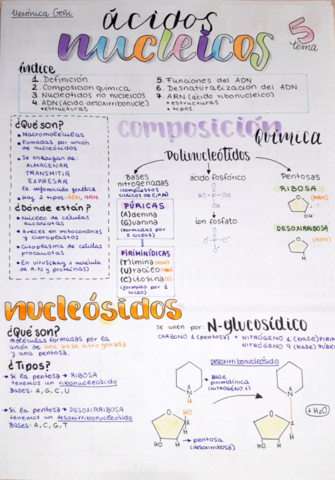 Verónica Goñi
ácidos
nucleicos
5
tema
índice
1. Definición
2. Composición química
3. Nucleótidos no nucleicos
4. ADN (Ácido desoxirribonucleic)
• estructuras
5. Funciones del ADN
6. Desnaturalización del ADN
7. ARN (Ácido ribonucleico)
• estructuras
• tipos
¿Qué son?
→ Macromoléculas
→ Formadas por unión
de nucleótidos
→ Se encargan de:
ALMACENAR
TRANSMITIR
EXPRESAR
la información genética
→ Hay 2 tipos: ADN, ARN
¿Dónde están?
→ Núcleo de células
eucariotas
→ A veces en mitocondrias
y cloroplastos
→ Citoplasma de células
procariotas
→ En virus (hay 1 molécula
de A.N y proteínas)
composición
química
Polinucleótidos
Bases
nitrogenadas
PÚRICAS
(A)denina
(G)uanina
(formadas por
2 ciclos)
PIRIMIDÍNICAS
(T)imina
(U)racilo
(C)itosina
(formado por 1
ciclo)
ácido fosfórico
ion fosfato
Pentosas
RIBOSA
(ARN)
DESOXIRRIBOSA
(ADN)
nucleósidos
¿Qué son?
moléculas formadas por la
unión de una base nitrogenada
y una pentosa.
¿Tipos?
→ Si la pentosa → RIBOSA
tenemos un ribonucleótido
Bases: A, G, C, U
→ Si la pentosa → DESOXIRRIBOSA
tenemos un desoxirribonucleótido
Bases: A, C, G, T
Se unen por: N-glucosídico
CARBONO 1 (pentosa) + NITRÓGENO 1 (base) PIRIM
NITRÓGENO 9 (base) PÚRI
desoxirribonucleótido
base
pirimidínica
(nitrógeno 1)
pentosa
(desoxirribosa)
+ H₂O